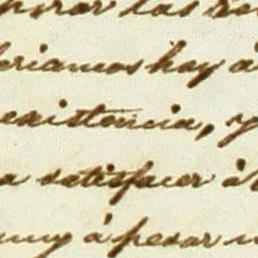 las
eriamos hoy á
existencia, y
a satisfacer á
muy á pesar